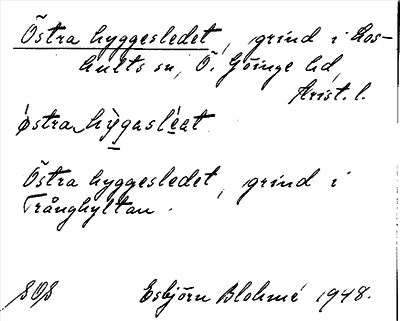 Östra hyggesledet, grind i Los-
hults sn, Ö. Göinge hd,
Krist. l.
östra hỳgasléat
Östra hyggesledet, grind i
Trånghyltan.
SOS Esbjörn Blohmé 1948.